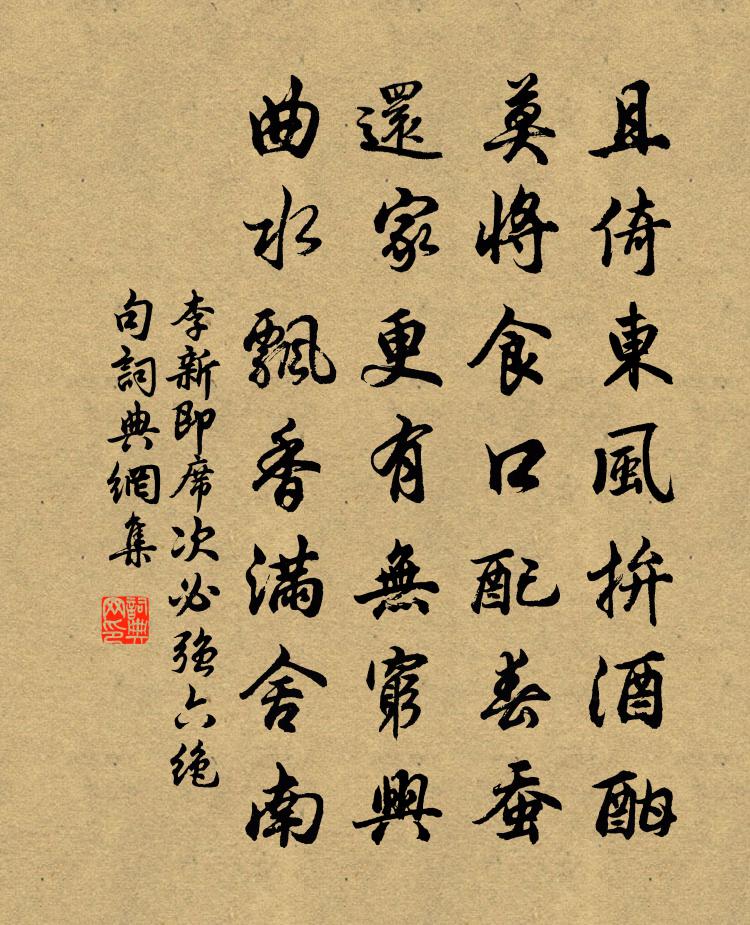 且倚東風拚酒酣
莫將食口配春蚕
還家更有無窮興
曲水飄香滿舍南
李新即席次必強六绝
句詞典網集
詞典网印